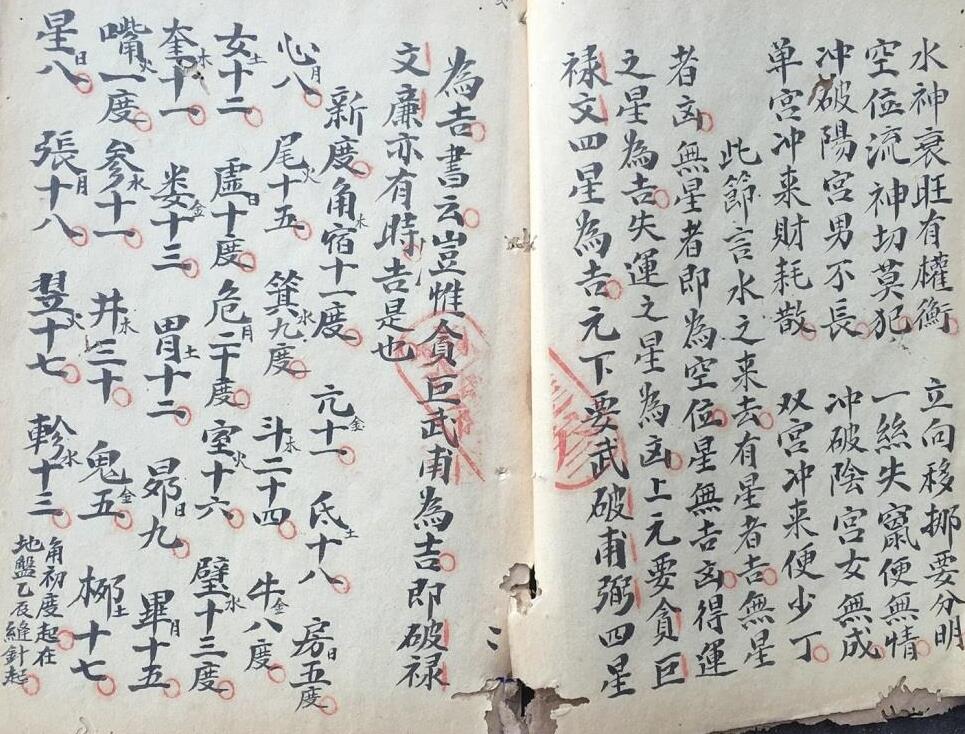 水神衰旺有權衡　立向移挪要分明
空位流神切莫犯　一絲失竄便無情
冲破陽宮男不長　冲破陰宮女無成
单宮冲来財耗散　双宮冲来便少丁
此節言水之来去有星者吉無星
者凶無星者即為空位星無吉凶得運
之星為吉失運之星為凶上元要貪巨
禄文四星為吉元下要武破甫弼四星
為吉書云豈惟貪巨武甫為吉即破禄
文廉亦有時吉是也
新度角木宿十一度　亢金十一　氐土十八　房日五度
心月八　尾火十五　箕水九度　斗木二十四　牛金八度
女土十二　虚日十度　危月二十度　室火十六　壁水十三度
奎木十一　娄金十三　胃土十二　昴日九　畢月十五
嘴火一度　参水十一　井木三十　鬼金五　柳土十七
星日八　張月十八　翌火十七　軫水十三
角初度起在
地盤乙辰縫針起